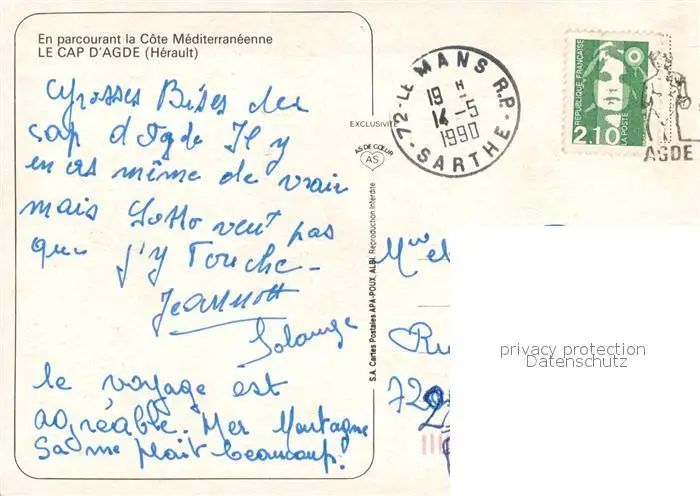 En parcourant la Côte Méditerranéenne
LE CAP D'AGDE (Hérault)
Grosses Bises du
cap d'Agde Il y
en as même de vrair
mais Totto veut pas
que j'y Touche_
Jeannott
Solange
le voyage est
agréable. Mer Montagne
Sa me plait beaucoup!
EXCLUSIVITÉ
AS DE CŒUR
AS
S.A. Cartes Postales APA-POUX, ALBI, Reproduction interdite
72 - LE MANS R.P.
19 H
14 - 5
1990
SARTHE
RÉPUBLIQUE FRANÇAISE
2,10
LA POSTE
AGDE
Mme
Ru
72
privacy protection
Datenschutz